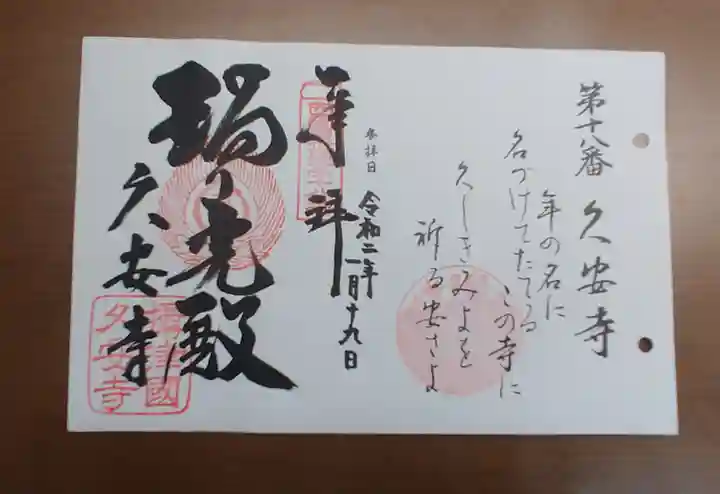 第十八番 久安寺
年の名に
名づけてたてる
この寺に
久しきみよを
祈る安さよ
参拝日
令和二年一月十九日
奉拝
瑠り光殿
久安寺
攝津國
久安寺